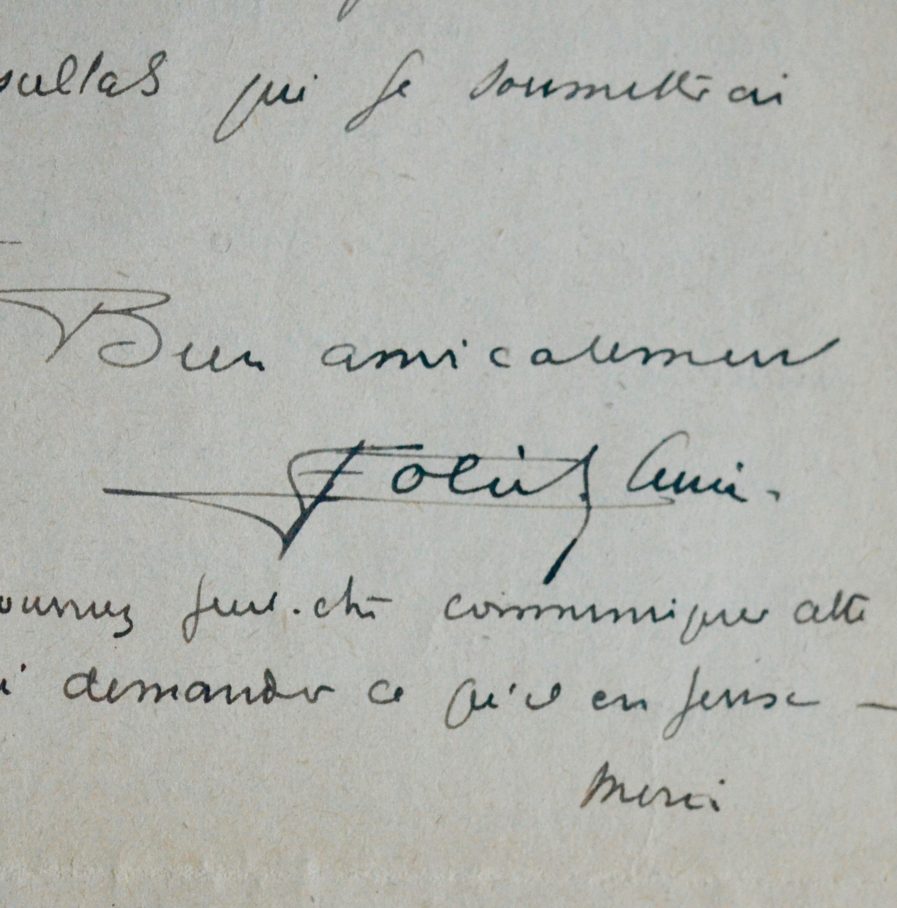 sultats que je soumettrai
Bien amicalement
Foliot Ami.
pourriez peut-être communiquer cette
lui demander ce qu'il en pense —
Merci